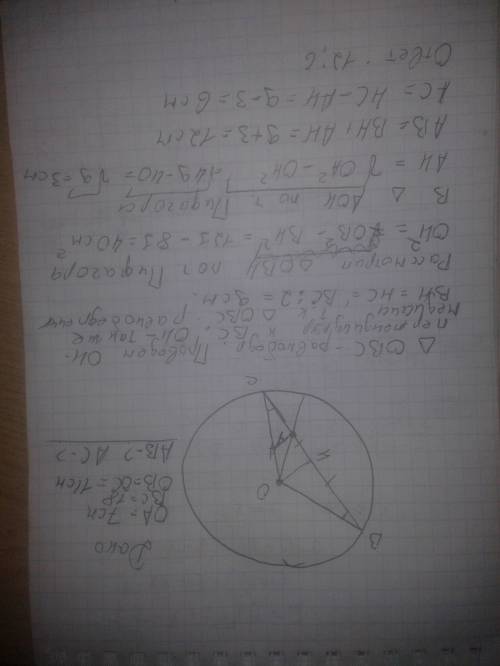 Дано
OA = 7см
BC = 18
OB=OC = 11см
AB-? AC-?
B
O
H
A
C
Δ OBC - равнобедр. Проведем OH-
перпендикуляр к BC. OH - также
медиана т.к. Δ OBC равнобедрен
BH = HC = BC : 2 = 9см.
Рассмотрим Δ OBH по т Пифагора
OH² = OB² - BH² = 121 - 81 = 40см
В Δ AOH по т. Пифагора
AH = √OA² - OH² = √49-40 = √9 = 3см
AB = BH + AH = 9+3 = 12см
AC = HC - AH = 9-3 = 6см
Ответ: 12; 6